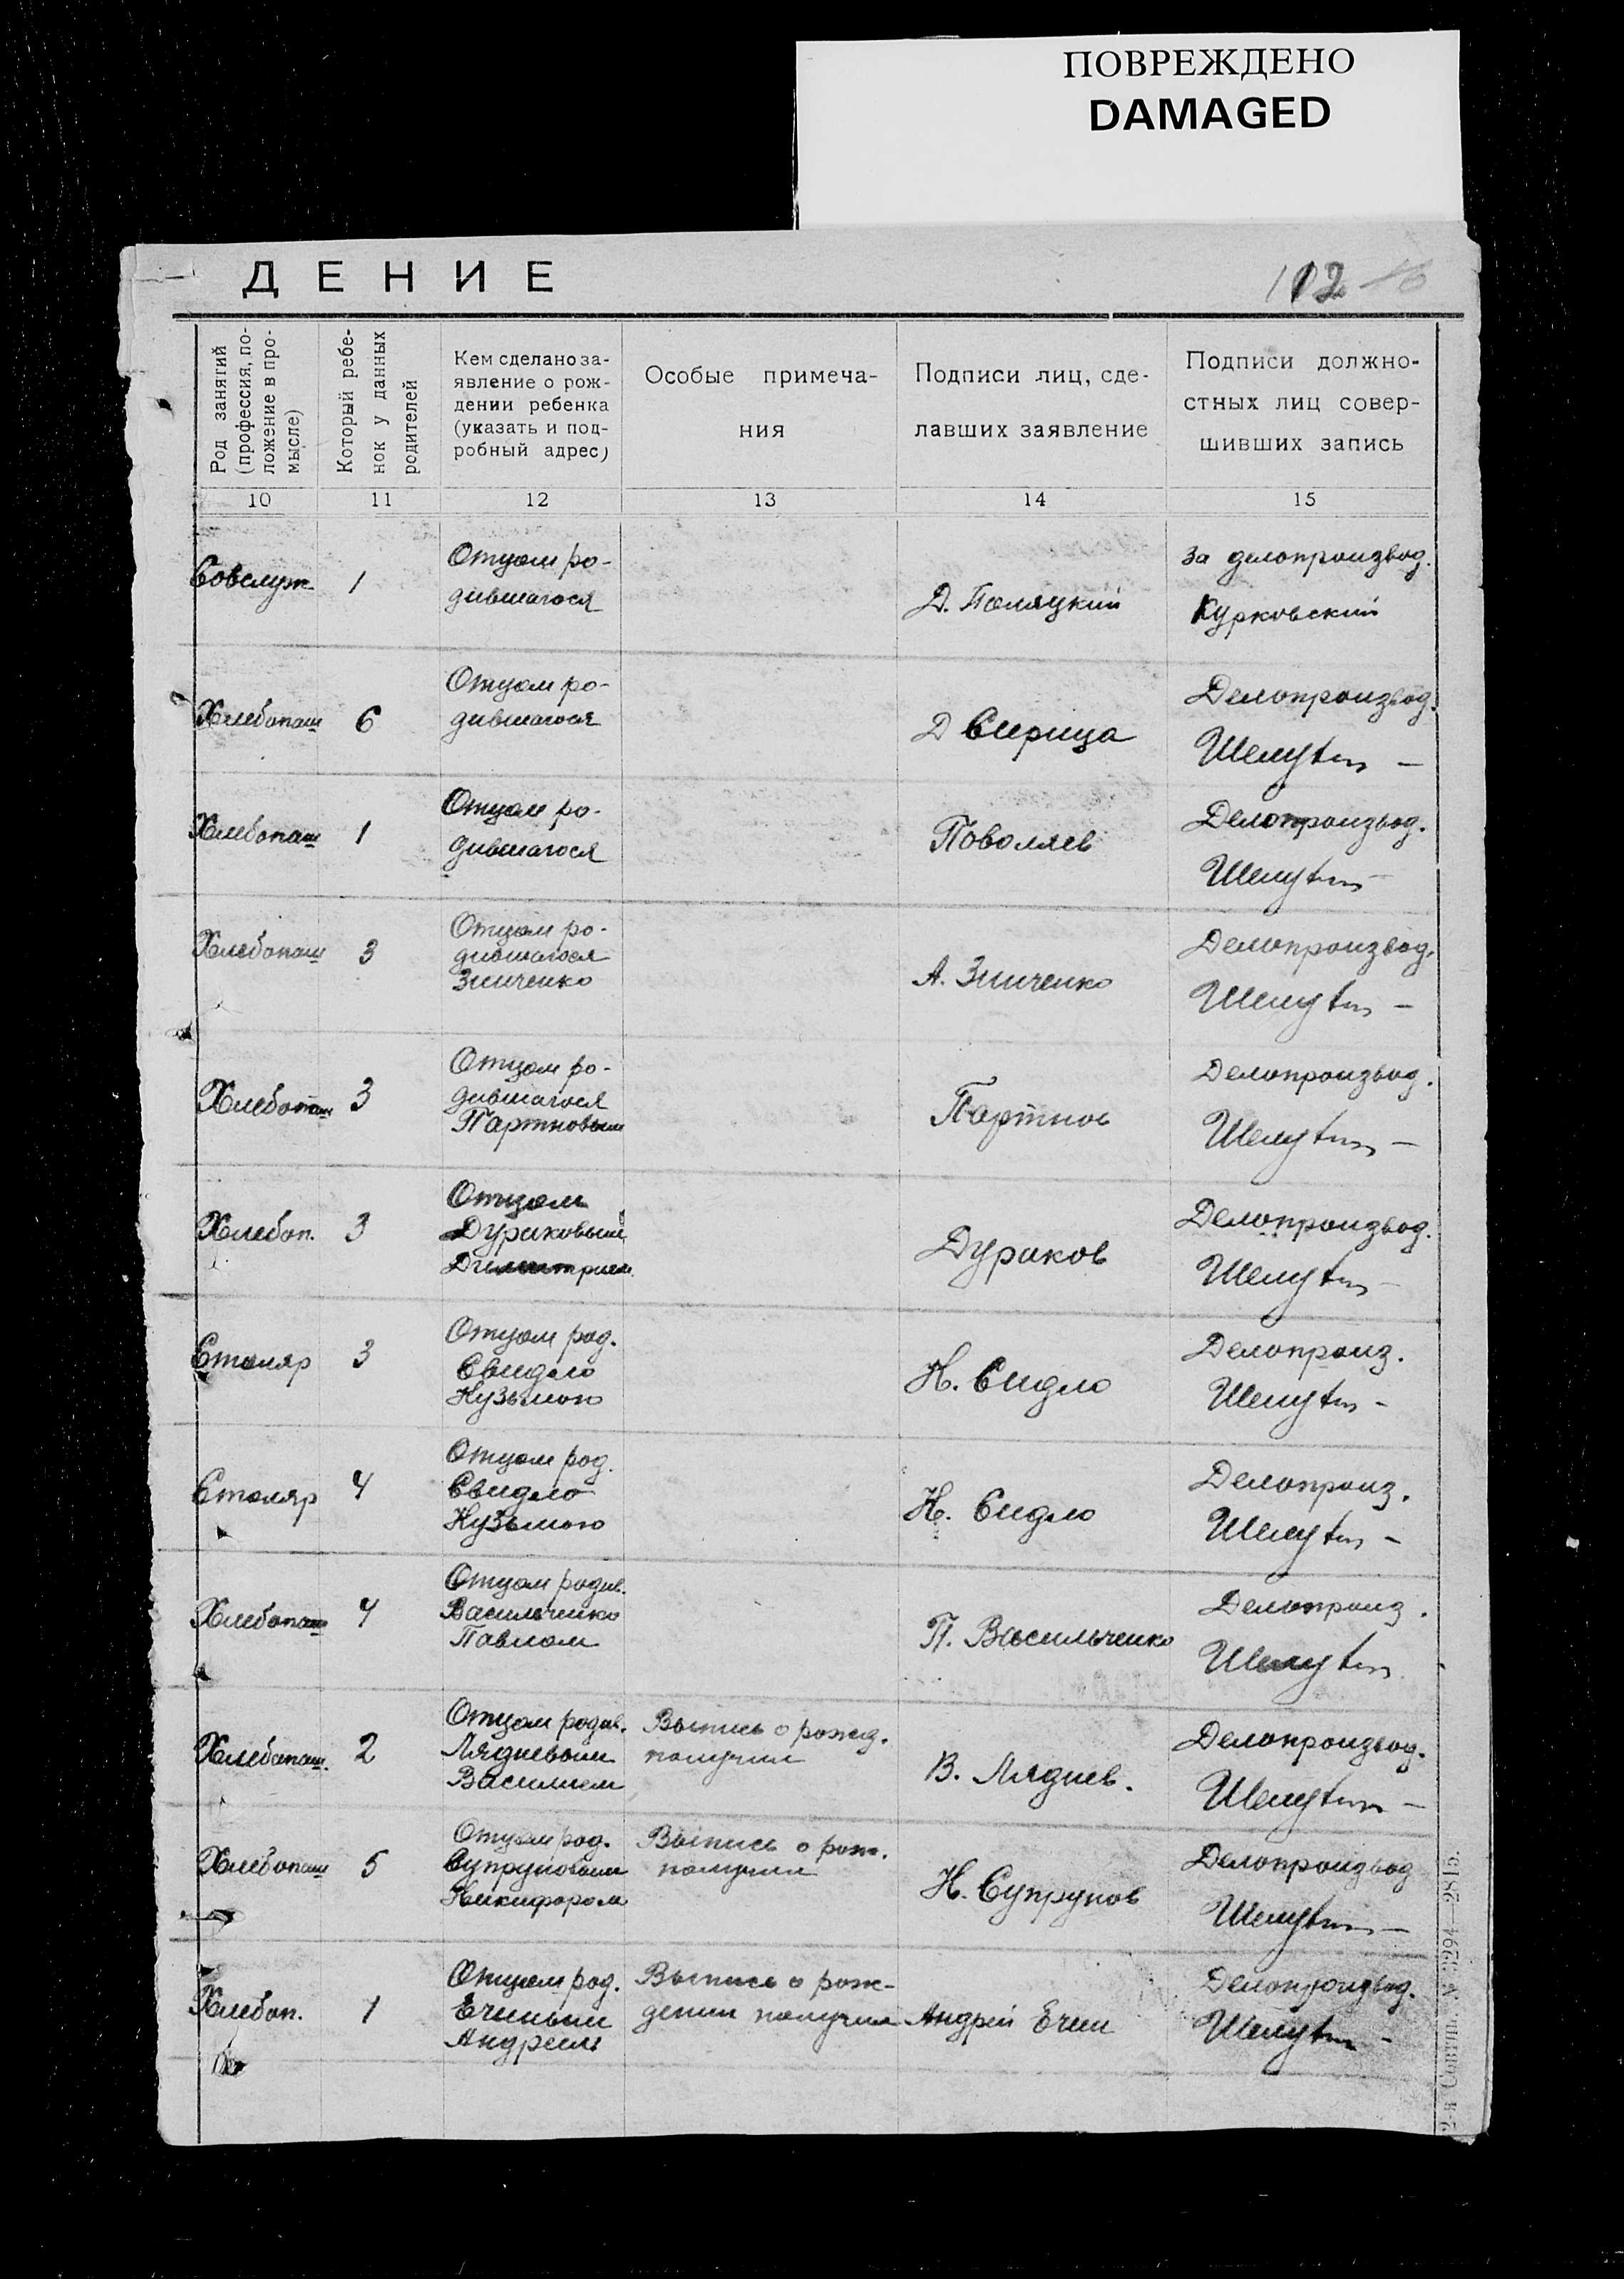 ПОВРЕЖДЕНО
DAMAGED
ДЕНИЕ
112
Род занятий
(профессия, по-
ложение в про-
мысле)
Который ребе-
нок у данных
родителей
Кем сделано за-
явление о рож-
дении ребенка
(указать и под-
робный адрес)
Особые примеча-
ния
Подписи лиц, сде-
лавших заявление
Подписи должно-
стных лиц совер-
шивших запись
10 11 12 13 14 15
Совслуж 1
Отцом ро-
дившагося
Д. Поляцкий
За делопроизвод.
Курковский
Хлебопаш 6
Отцом ро-
дившагося
Д Сирица
Делопроизвод.
Шелутин
Хлебопаш 1
Отцом ро-
дившагося
Поволяев
Делопроизвод.
Шелутин
Хлебопаш 3
Отцом ро-
дившагося
Зинченко
А. Зинченко
Делопроизвод.
Шелутин
Хлебопаш 3
Отцом ро-
дившагося
Партновым
Партнов
Делопроизвод.
Шелутин
Хлебоп. 3
Отцом
Дураковым
Димитрием
Дураков
Делопроизвод.
Шелутин
Столяр 3
Отцом род.
Свидло
Кузьмою
К. Сидло
Делопроиз.
Шелутин
Столяр 4
Отцом род.
Свидло
Кузьмою
К. Сидло
Делопроиз.
Шелутин
Хлебопаш 4
Отцом родив.
Васильченко
Павлом
П. Васильченко
Делопроиз.
Шелутин
Хлебопаш. 2
Отцом родив.
Лядневым
Василием
Выпись о рожд.
получил
В. Ляднев.
Делопроизвод.
Шелутин
Хлебопаш 5
Отцом род.
Супруновым
Никифором
Выпись о рож.
получил
Н. Супрунов
Делопроизвод
Шелутин
Хлебоп. 1
Отцом род.
Ечиным
Андреем
Выпись о рож-
дении получил
Андрей Ечин
Делопроизвод.
Шелутин
2-я Совтип. № 3294—2815.